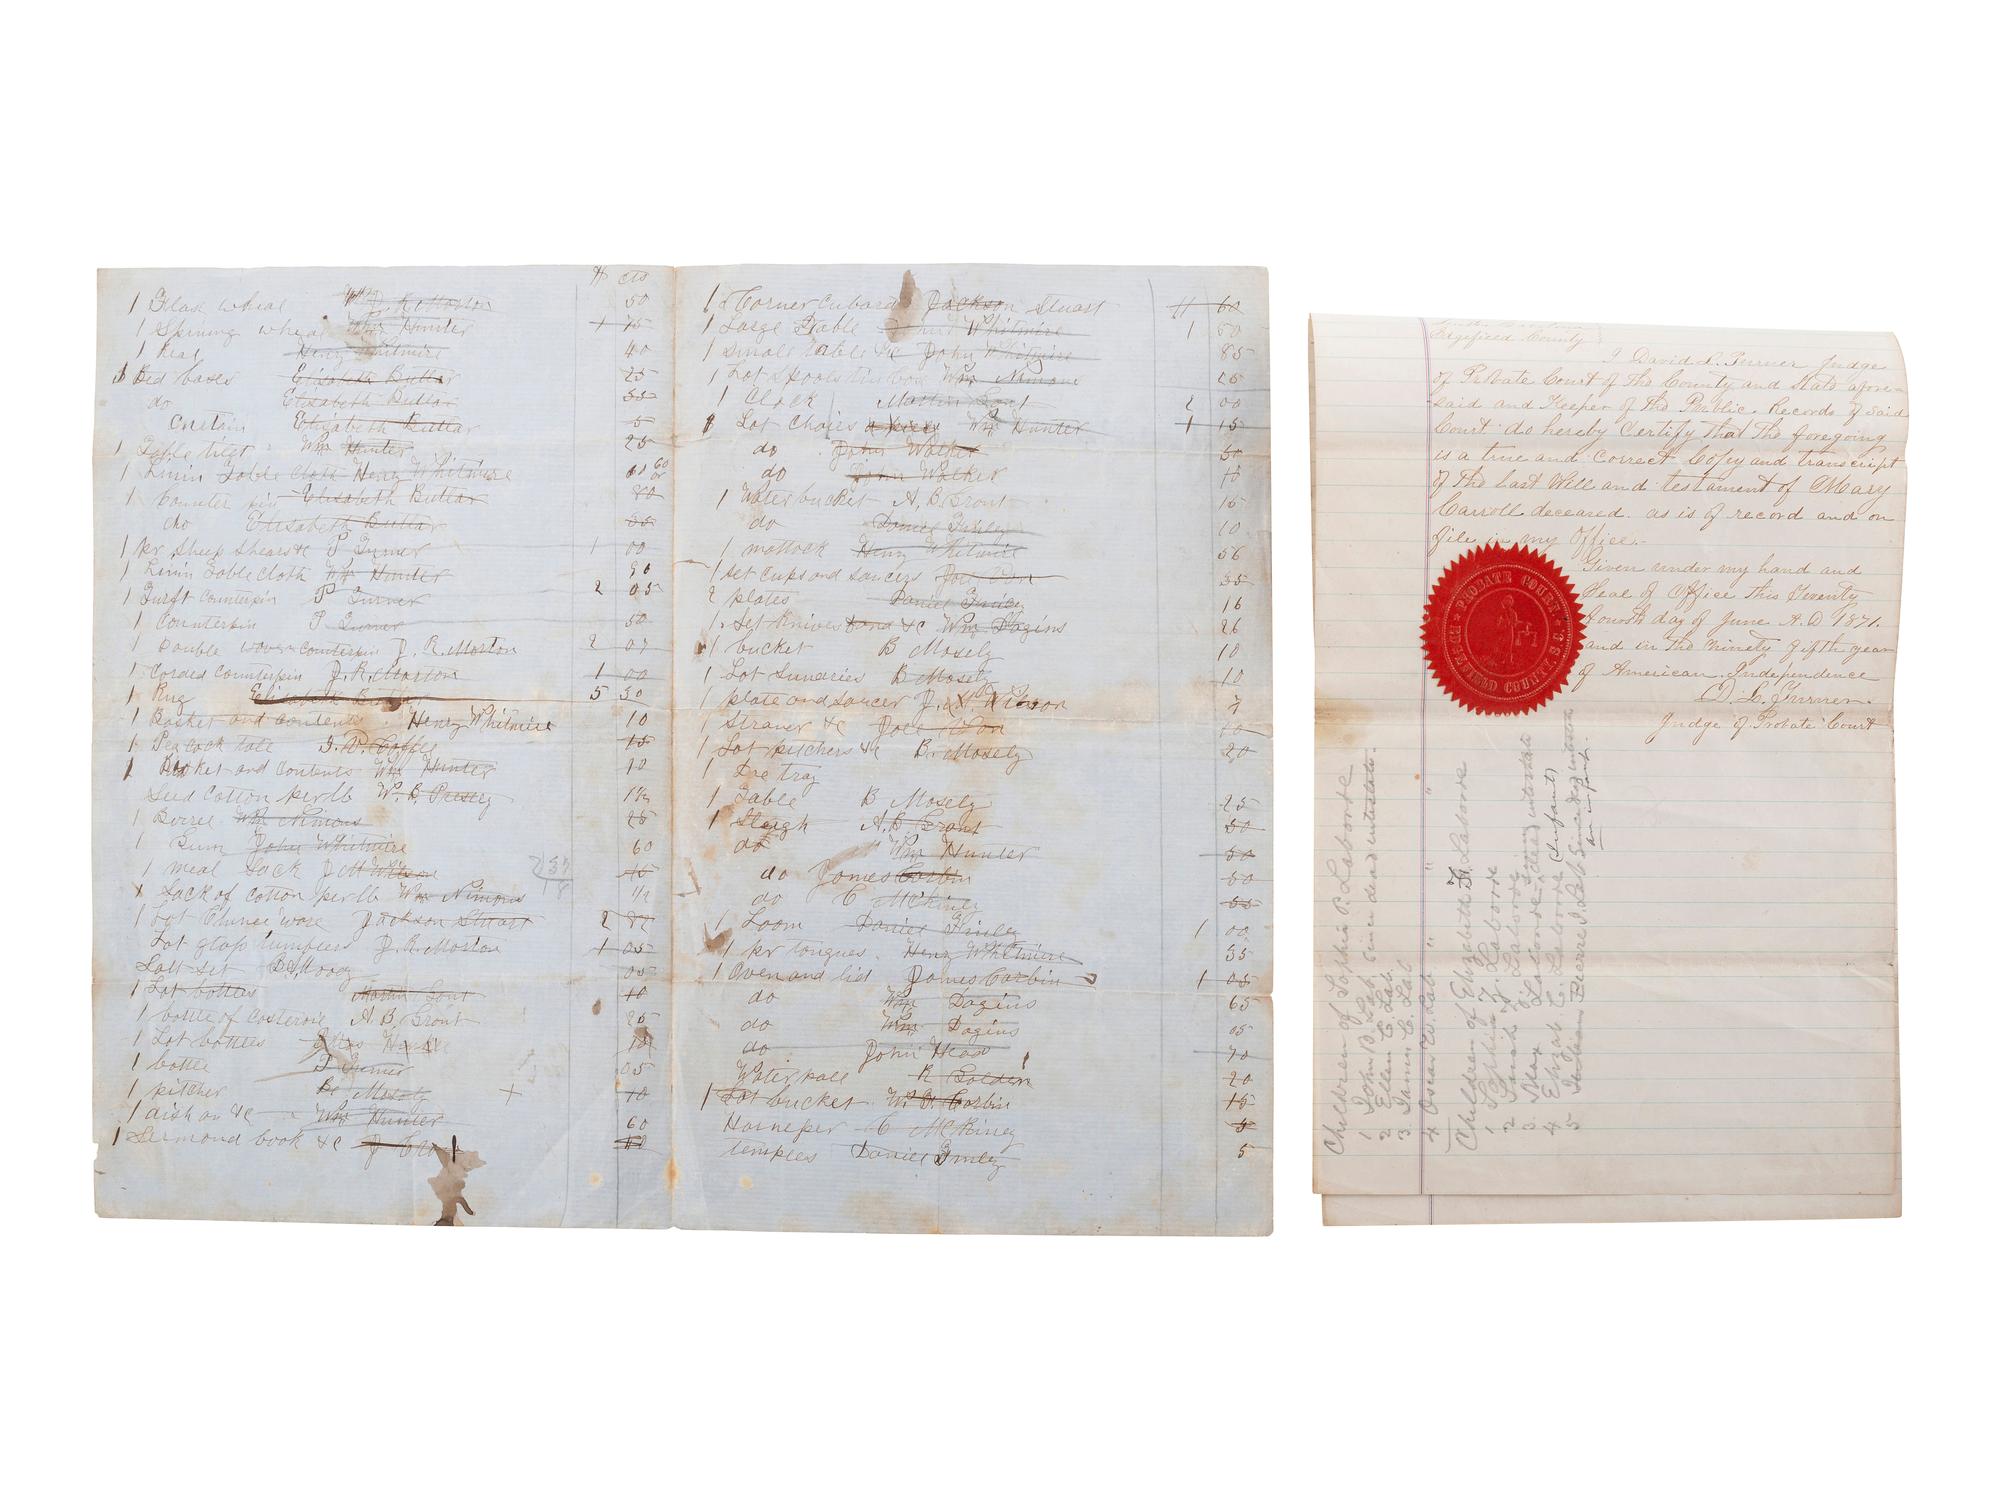 $ cts
1 Flax wheal Wm J. R. Morton 50
1 Spining wheal Wm Hunter 1 75
1 Real Henry Whitmire 40
1 Bed bases Elisabeth Buttar 25
do Elisabeth Buttar 35
Curtain Elisabeth Buttar 5
1 Wm Hunter 25
1 Linin Table cloth Henry Whitmire 60
1 Counter pin Elisabeth Buttar 80
do Elisabeth Buttar 35
1 pr Sheep Shears &c P Turner 1 00
1 Linin Table cloth Wm Hunter 90
1 Turft Counterpin P Turner 2 05
1 Counterpin P Turner 50
1 Double woven counterpin J. R. Morton 2 07
1 Corded Counterpin J. R. Morton 1 00
1 Rug Elisabeth Buttar 5 50
1 Basket and contents Henry Whitmire 10
1 Peacock tale Coffee 15
1 Basket and Contents Wm Hunter 10
Seed Cotton per lb W. B. Presley
1 Barrel Wm Nimons 25
1 Gum John Whitmire 60
1 meal Sack J M Wilson 15
1 Sack of Cotton per lb Wm Nimons 1½
1 Lot Chinee ware Jackson Stuart 2
Lot glass tumblers J. R. Morton 1 05
Salt Set B. Moody 05
1 Lot bottles Martin Gout 10
1 bottle of Casteroil A. B. Grant 25
1 Lot bottles 10
1 bottle P Turner 05
1 pitcher B. Mosely 10
1 dish an &c Wm Hunter 60
1 Sermond book &c J
1 Corner cubard Jackson Stuart 11 60
1 Large Table Whitmire 1 50
1 Small table &c John Whitmire 85
1 Lot Spools tin box Wm Nimons 25
1 Clock Martin Gout 2 00
1 Lot Chairs Wm Hunter 1 15
do John Walker 50
do John Walker 10
1 Water bucket A. B. Grant 15
do Daniel Finley 10
1 mattock Henry Whitmire 56
1 set cups and saucers Joel Von 35
2 plates Daniel Finley 16
1 Set Knives &c Wm Dagins 26
1 bucket B Mosely 10
1 Lot Sundries B Mosely 10
1 plate and saucer J. N. Wilson 7
1 Straner &c Joel Von 10
1 Lot pitchers &c B. Mosely 20
1 Dre tray
1 Table B Mosely 25
1 Sleigh A. B. Grant 50
do " Wm Hunter 50
do James Corbin 50
do C McKiney 55
1 Loom Daniel Finley 1 00
1 pr tongues Henry Whitmire 35
1 Oven and lid James Corbin 1 05
do Wm Dagins 65
do Wm Dagins 05
do John Head 70
Water pale R Golden 20
1 Lot bucket W. D. Corbin 15
Harneper C McKiney 5
temples Daniel Finley 5
South Carolina
Edgefield County
I David L. Turner Judge
of Probate Court of the County and State afore-
said and Keeper of the Public Records of Said
Court do hereby Certify that The foregoing
is a true and correct Copy and transcript
of The Last Will and testament of Mary
Carroll deceased. as is of record and on
file in my Office.-
Given under my hand and
Seal of Office this Twenty
fourth day of June A.D 1871.
and in the Ninety fifth year
of American Independence
D. L. Turner.
Judge of Probate Court
PROBATE COURT
EDGEFIELD COUNTY, S.C.
Children of Sophia P. Laborde
1 John P. Lab. since dead intestate.
2 Ellen C. Lab.
3. James C. Lab "
4 Oscar W. Lab " "
Children of Elizabeth F. Laborde
1 Sophia J. Laborde
2 Sarah J. Laborde
3. Max Laborde, dead intestate
4 Elizab. C. Laborde (infant)
5 Pierre J. Lab since dead intestate
an infant.